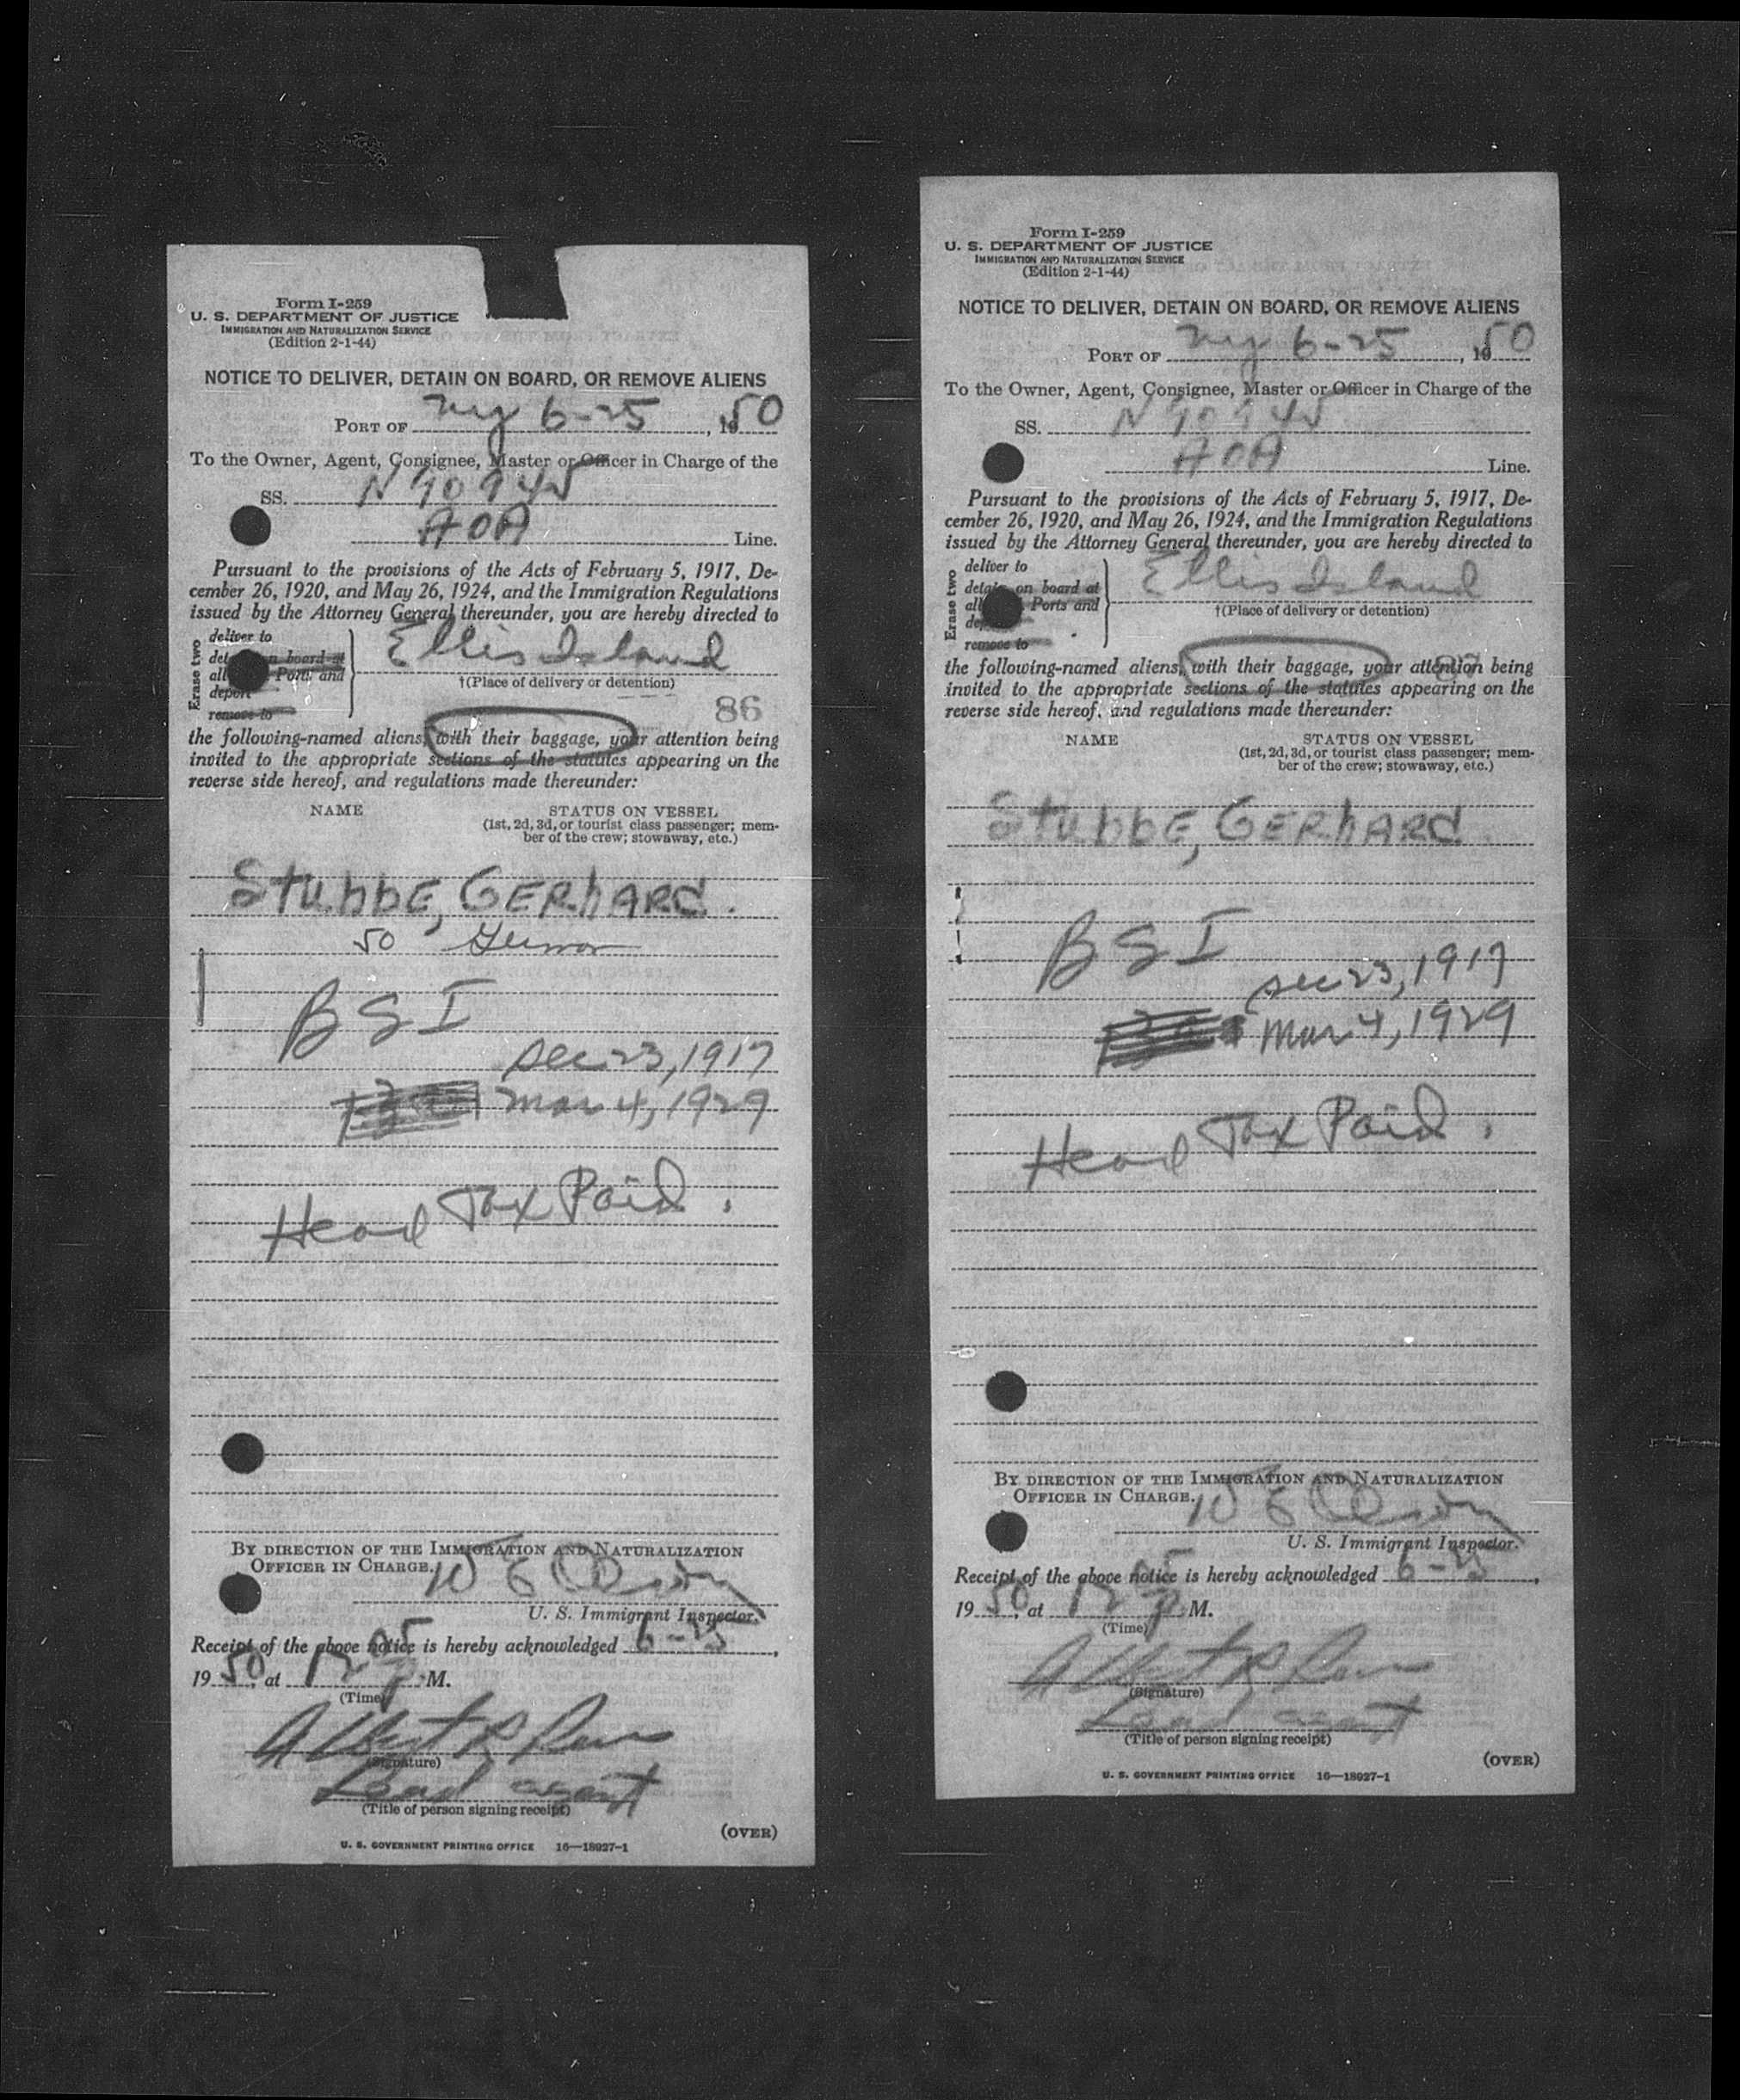 Form I-259
U. S. DEPARTMENT OF JUSTICE
IMMIGRATION AND NATURALIZATION SERVICE
(Edition 2-1-44)
NOTICE TO DELIVER, DETAIN ON BOARD, OR REMOVE ALIENS
PORT OF NY 6-25, 1950
To the Owner, Agent, Consignee, Master or Officer in Charge of the
SS. N90945
AOA Line.
Pursuant to the provisions of the Acts of February 5, 1917, De-
cember 26, 1920, and May 26, 1924, and the Immigration Regulations
issued by the Attorney General thereunder, you are hereby directed to
Erase two
deliver to
on board at
all Ports and
deport
remove to
Ellis Island
†(Place of delivery or detention)
86
the following-named aliens, with their baggage, your attention being
invited to the appropriate sections of the statutes appearing on the
reverse side hereof, and regulations made thereunder:
NAME STATUS ON VESSEL
(1st, 2d, 3d, or tourist class passenger; mem-
ber of the crew; stowaway, etc.)
StubbE, GERhARd.
50
BSI
Sec 23, 1917
Mar 4, 1929
Head Tax Paid.
BY DIRECTION OF THE IMMIGRATION AND NATURALIZATION
OFFICER IN CHARGE.
U. S. Immigrant Inspector.
Receipt of the above notice is hereby acknowledged 6-25,
1950, at 12 05 P M.
(Time)
Albert R
(Signature)
Lead agent
(Title of person signing receipt)
(OVER)
U. S. GOVERNMENT PRINTING OFFICE 16—18027-1
Form I-259
U. S. DEPARTMENT OF JUSTICE
IMMIGRATION AND NATURALIZATION SERVICE
(Edition 2-1-44)
NOTICE TO DELIVER, DETAIN ON BOARD, OR REMOVE ALIENS
PORT OF NY 6-25, 1950
To the Owner, Agent, Consignee, Master or Officer in Charge of the
SS. N90945
AOA Line.
Pursuant to the provisions of the Acts of February 5, 1917, De-
cember 26, 1920, and May 26, 1924, and the Immigration Regulations
issued by the Attorney General thereunder, you are hereby directed to
Erase two
deliver to
detain on board at
all Ports and
remove to
Ellis Island
†(Place of delivery or detention)
87
the following-named aliens, with their baggage, your attention being
invited to the appropriate sections of the statutes appearing on the
reverse side hereof, and regulations made thereunder:
NAME STATUS ON VESSEL
(1st, 2d, 3d, or tourist class passenger; mem-
ber of the crew; stowaway, etc.)
StubbE, GERhARd.
BSI
Sec 23, 1917
Mar 4, 1929
Head Tax Paid.
BY DIRECTION OF THE IMMIGRATION AND NATURALIZATION
OFFICER IN CHARGE.
U. S. Immigrant Inspector.
Receipt of the above notice is hereby acknowledged 6-25,
1950, at 12 05 P M.
(Time)
Albert R
(Signature)
Lead agent
(Title of person signing receipt)
(OVER)
U. S. GOVERNMENT PRINTING OFFICE 16—18027-1